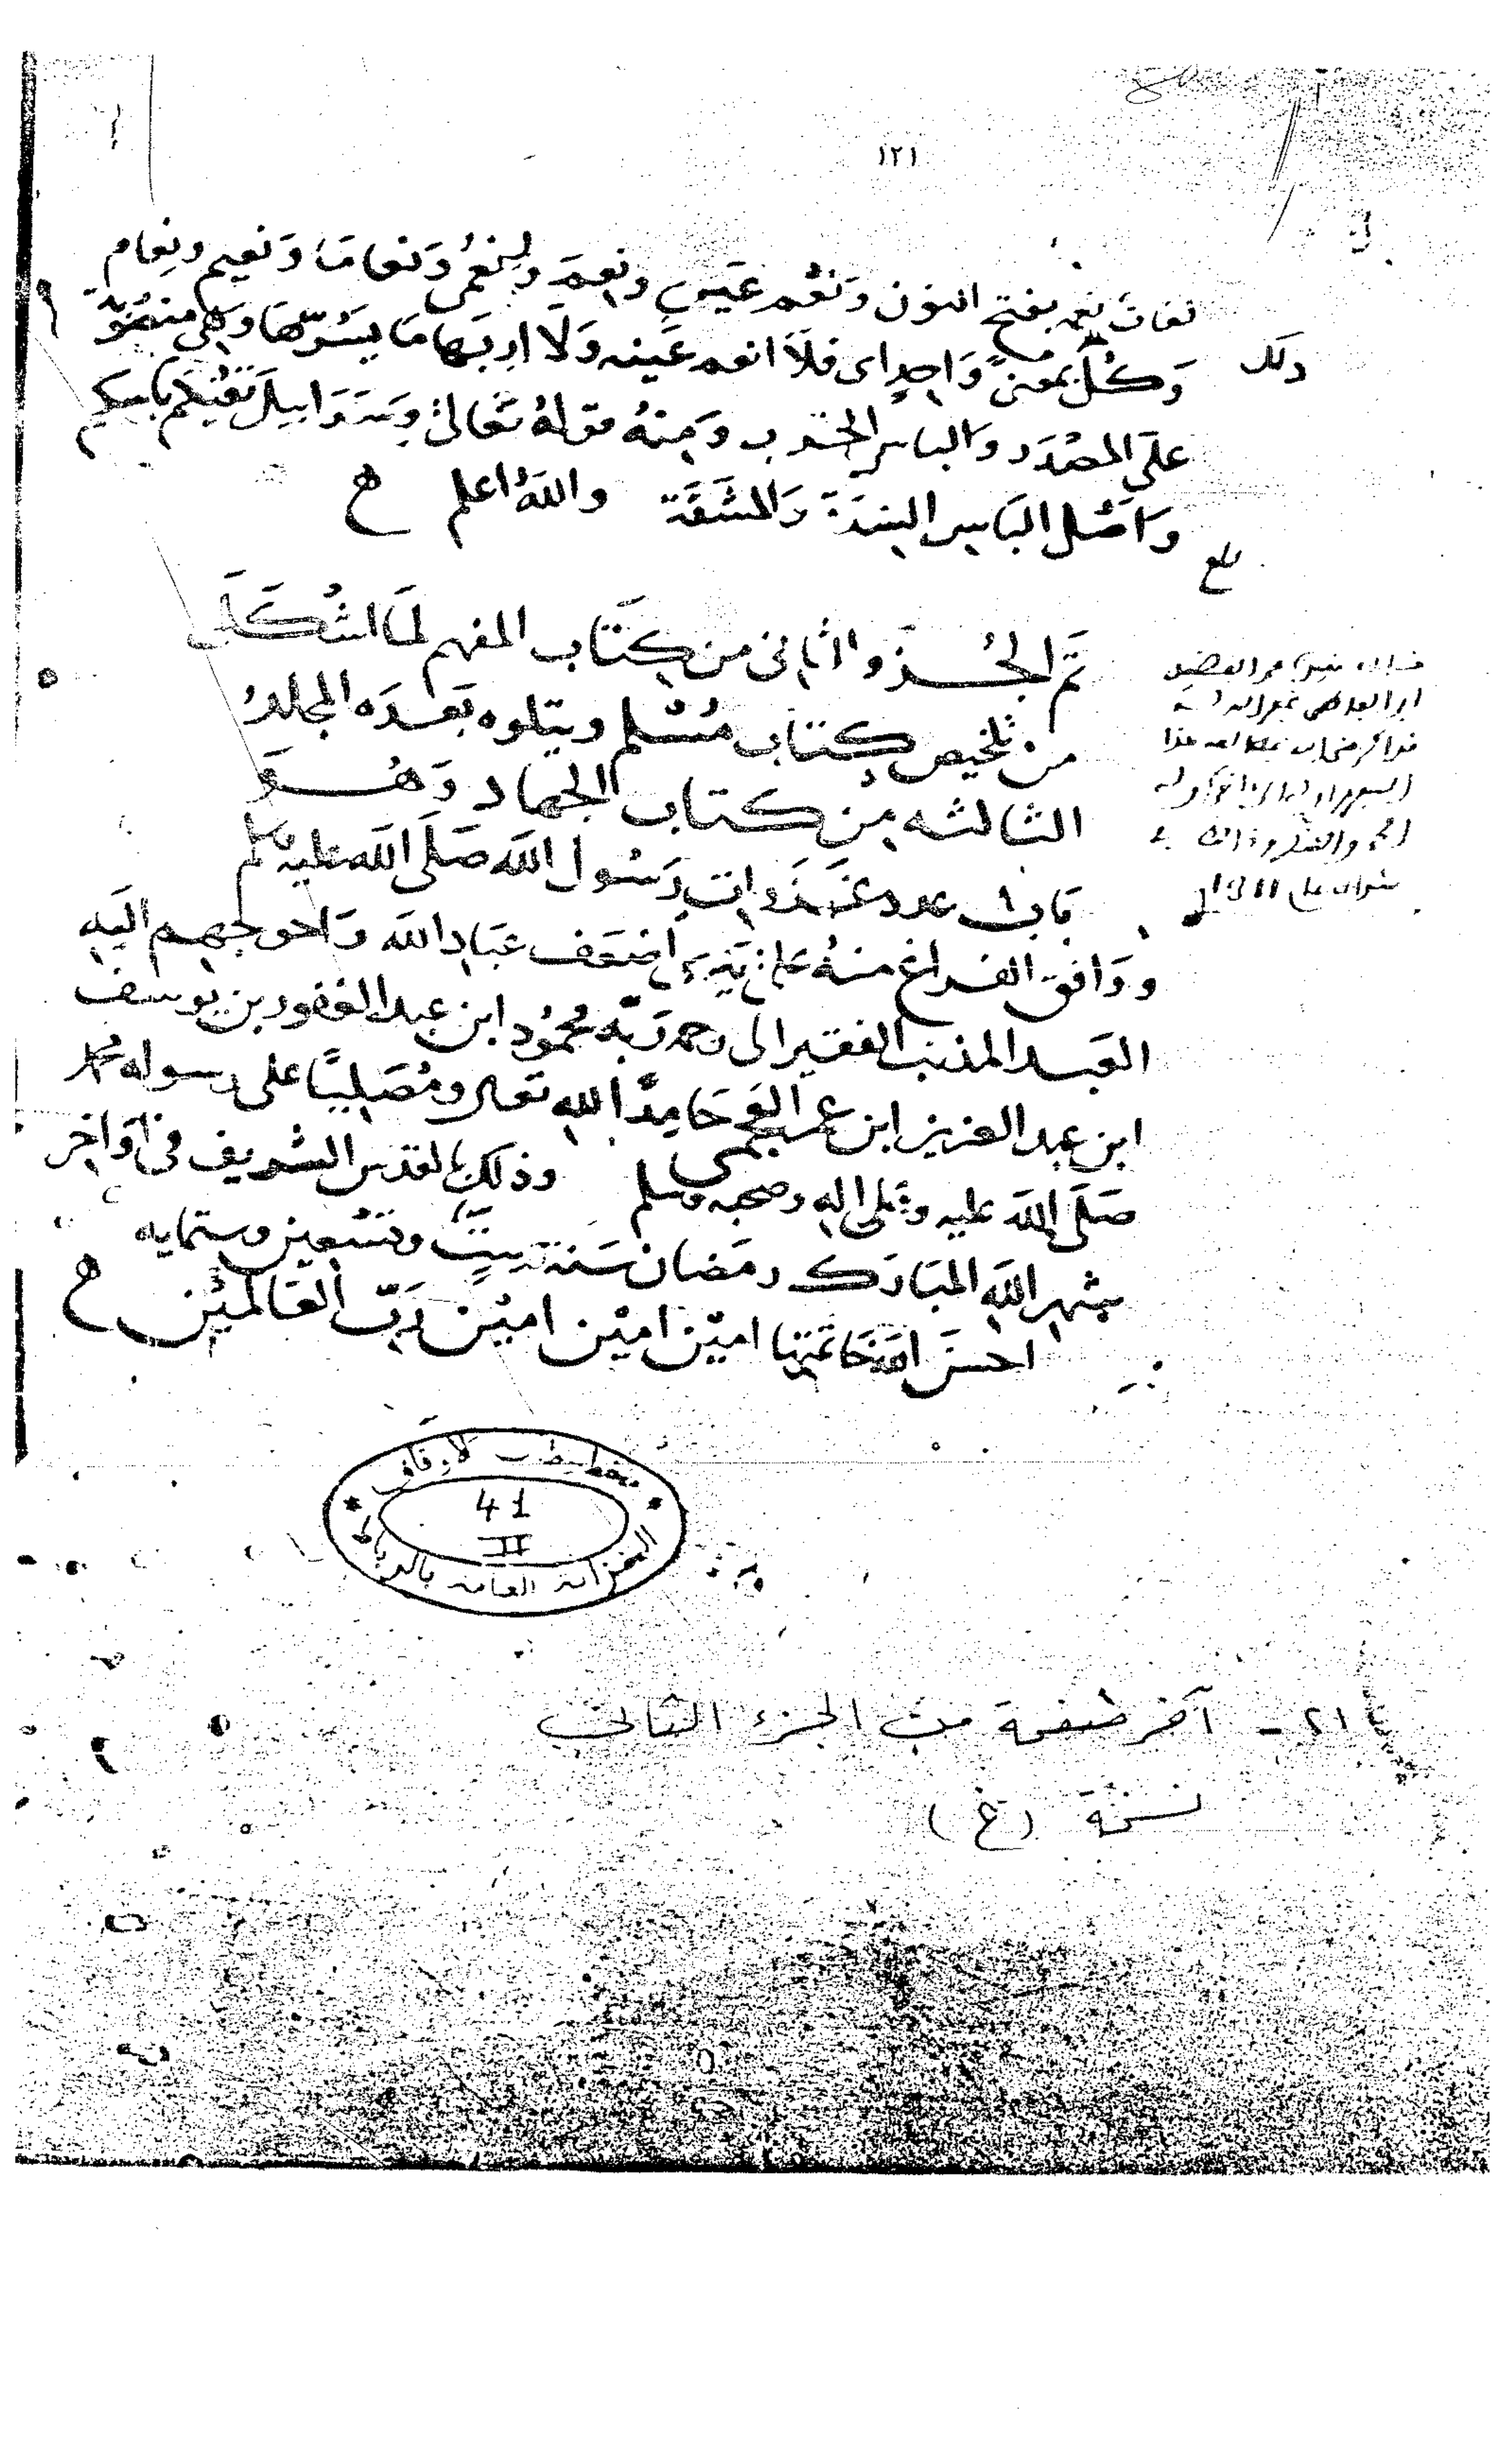 ١٢١
لغات نعمه بفتح النون ونُعْم عين ونعمة ونُعمى ونعامًا ونعيم ونِعام
ذلك
وكُلّ بمعنىً واحدٍ اى فلا انعم عينه ولا اريها ما يسرّها وهى منصُوبة
على المصدر والباس الحرب ومنه قوله تعالى وسرابيل تقيكم باسكم
واصل الباس الشدة والمشقة والله اعلم
بلغ
تم الجُزؤ الثانى من كتاب المفهم لما اشكل
من تلخيص كتاب مُسْلم ويتلوه بعده المجلدُ
الثالثه من كتاب الجهاد وهُوَ
باب عدد غزوات رسُول الله صَلى الله عليه وسلم
ووافق الفراغ منهُ على يدى اضعف عباد الله واحوجهم اليه
العبد المذنب الفقير الى رحمة ربّه محمُود ابن عبد الغفور بن يوسف
ابن عبد العزيز ابن عمر العجمى حَامِدًا لله تعالى ومُصَليًا على رسوله محمد
صَلى الله عليه وعلى اله وصحبه وسلم وذلك بالقدس الشريف فى اواخر
شهر الله المبارك رمضان سَنة سِتٍّ وتسعين وستمايه
احسن الله خاتمتها امين امين امين رَبّ العَالمين
مخطوطات الأوقاف
41
II
الخزانة العامة بالرباط
٢١ - آخر صفحة من الجزء الثاني
نسخة (غ)